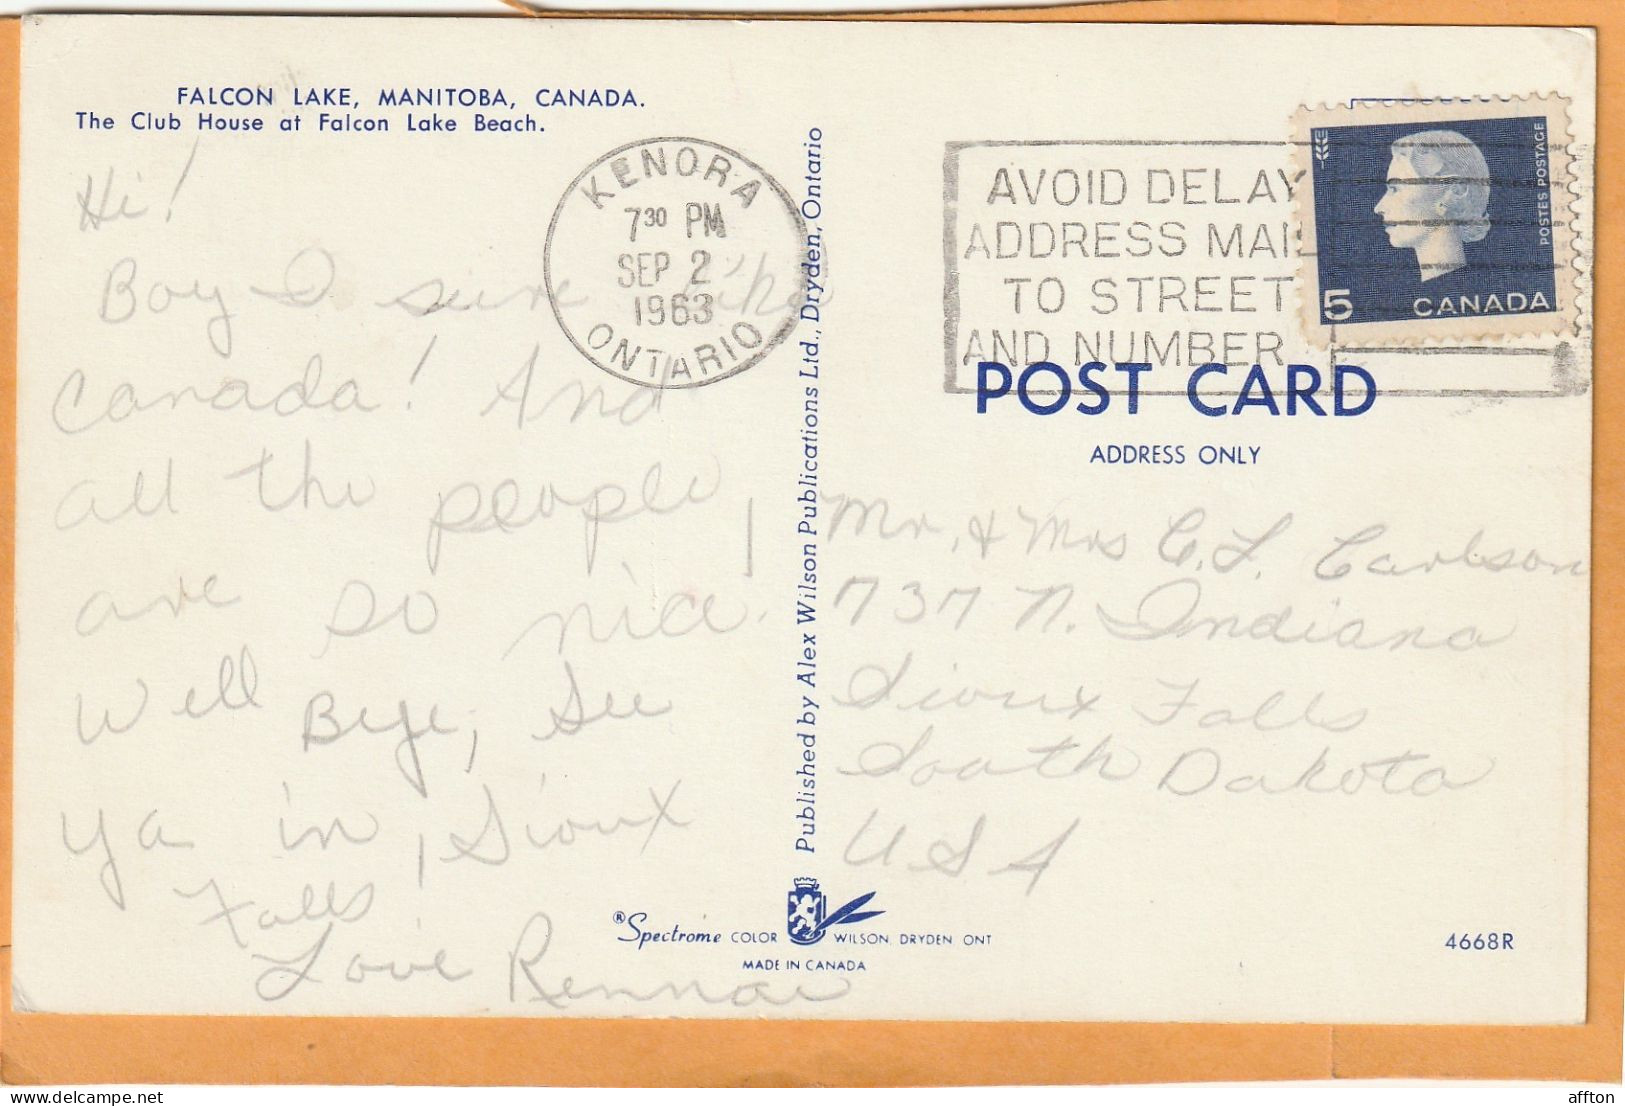 FALCON LAKE, MANITOBA, CANADA.
The Club House at Falcon Lake Beach.
Hi!
Boy I sure like
Canada! And
all the people
are so nice!
Well Bye, See
ya in Sioux
Falls!
Love
KENORA
7 30 PM
SEP 2
1963
ONTARIO
Published by Alex Wilson Publications Ltd., Dryden, Ontario
AVOID DELAY
ADDRESS MAIL
TO STREET
AND NUMBER
POSTES POSTAGE
5 CANADA
POST CARD
ADDRESS ONLY
Mr. & Mrs C. L. Carlson
737 N. Indiana
Sioux Falls
South Dakota
USA
® Spectrome COLOR WILSON, DRYDEN ONT
MADE IN CANADA
4668R
affton